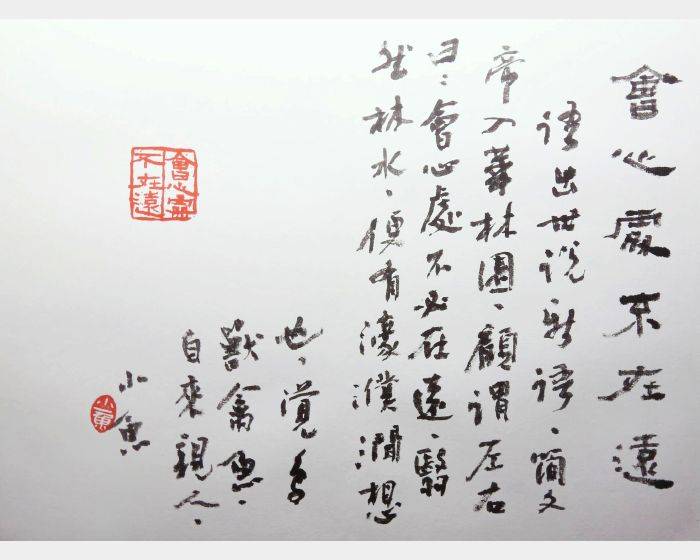 會心處不在遠
語出世說新語、簡文
帝入華林園、顧謂左右
曰：會心處不必在遠、翳
然林水、便有濠濮澗想
也、覺鳥
獸禽魚、
自來親人、
小魚
小魚
會心處
不在遠